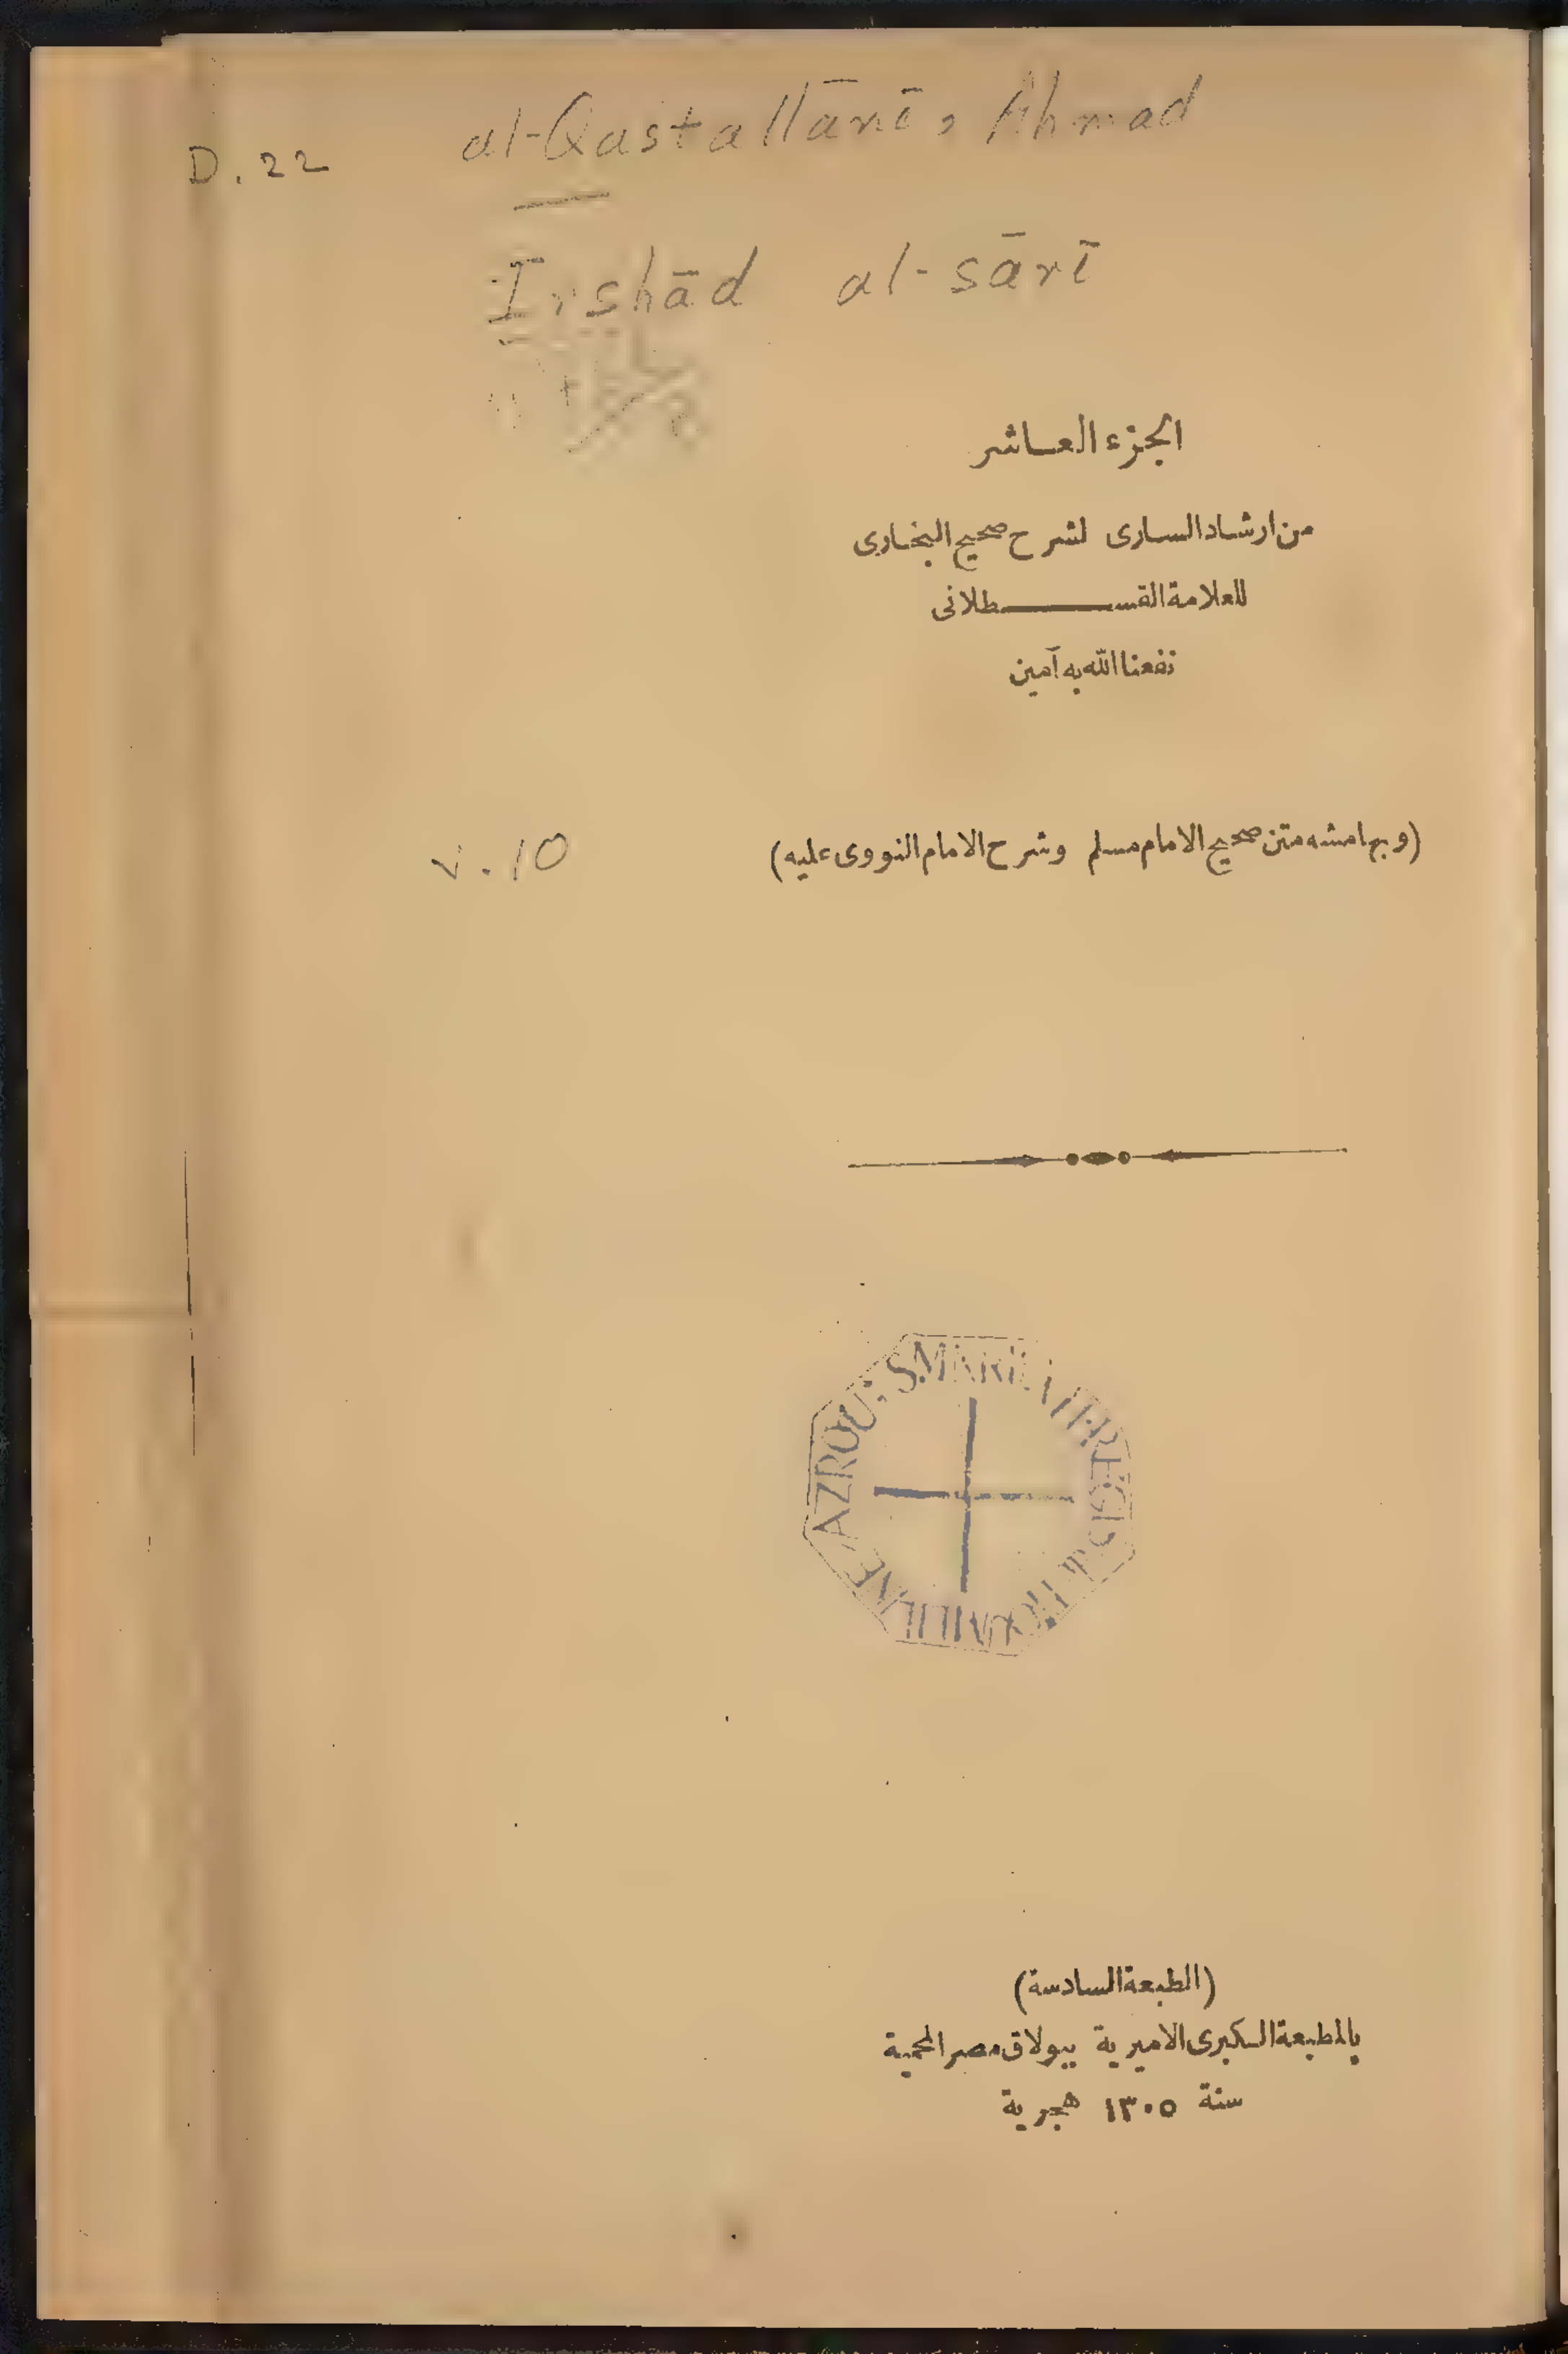 al-Qastallānī, Ahmad
D.22
Irshād al-sārī
الجزء العاشر
من ارشاد السارى لشرح صحيح البخارى
للعلامة القسطلانى
نفعنا الله به آمين
(وبهامشه متن صحيح الامام مسلم وشرح الامام النووى عليه)
v.10
AZROU
(الطبعة السادسة)
بالمطبعة الكبرى الاميرية ببولاق مصر المحمية
سنة ١٣٠٥ هجرية